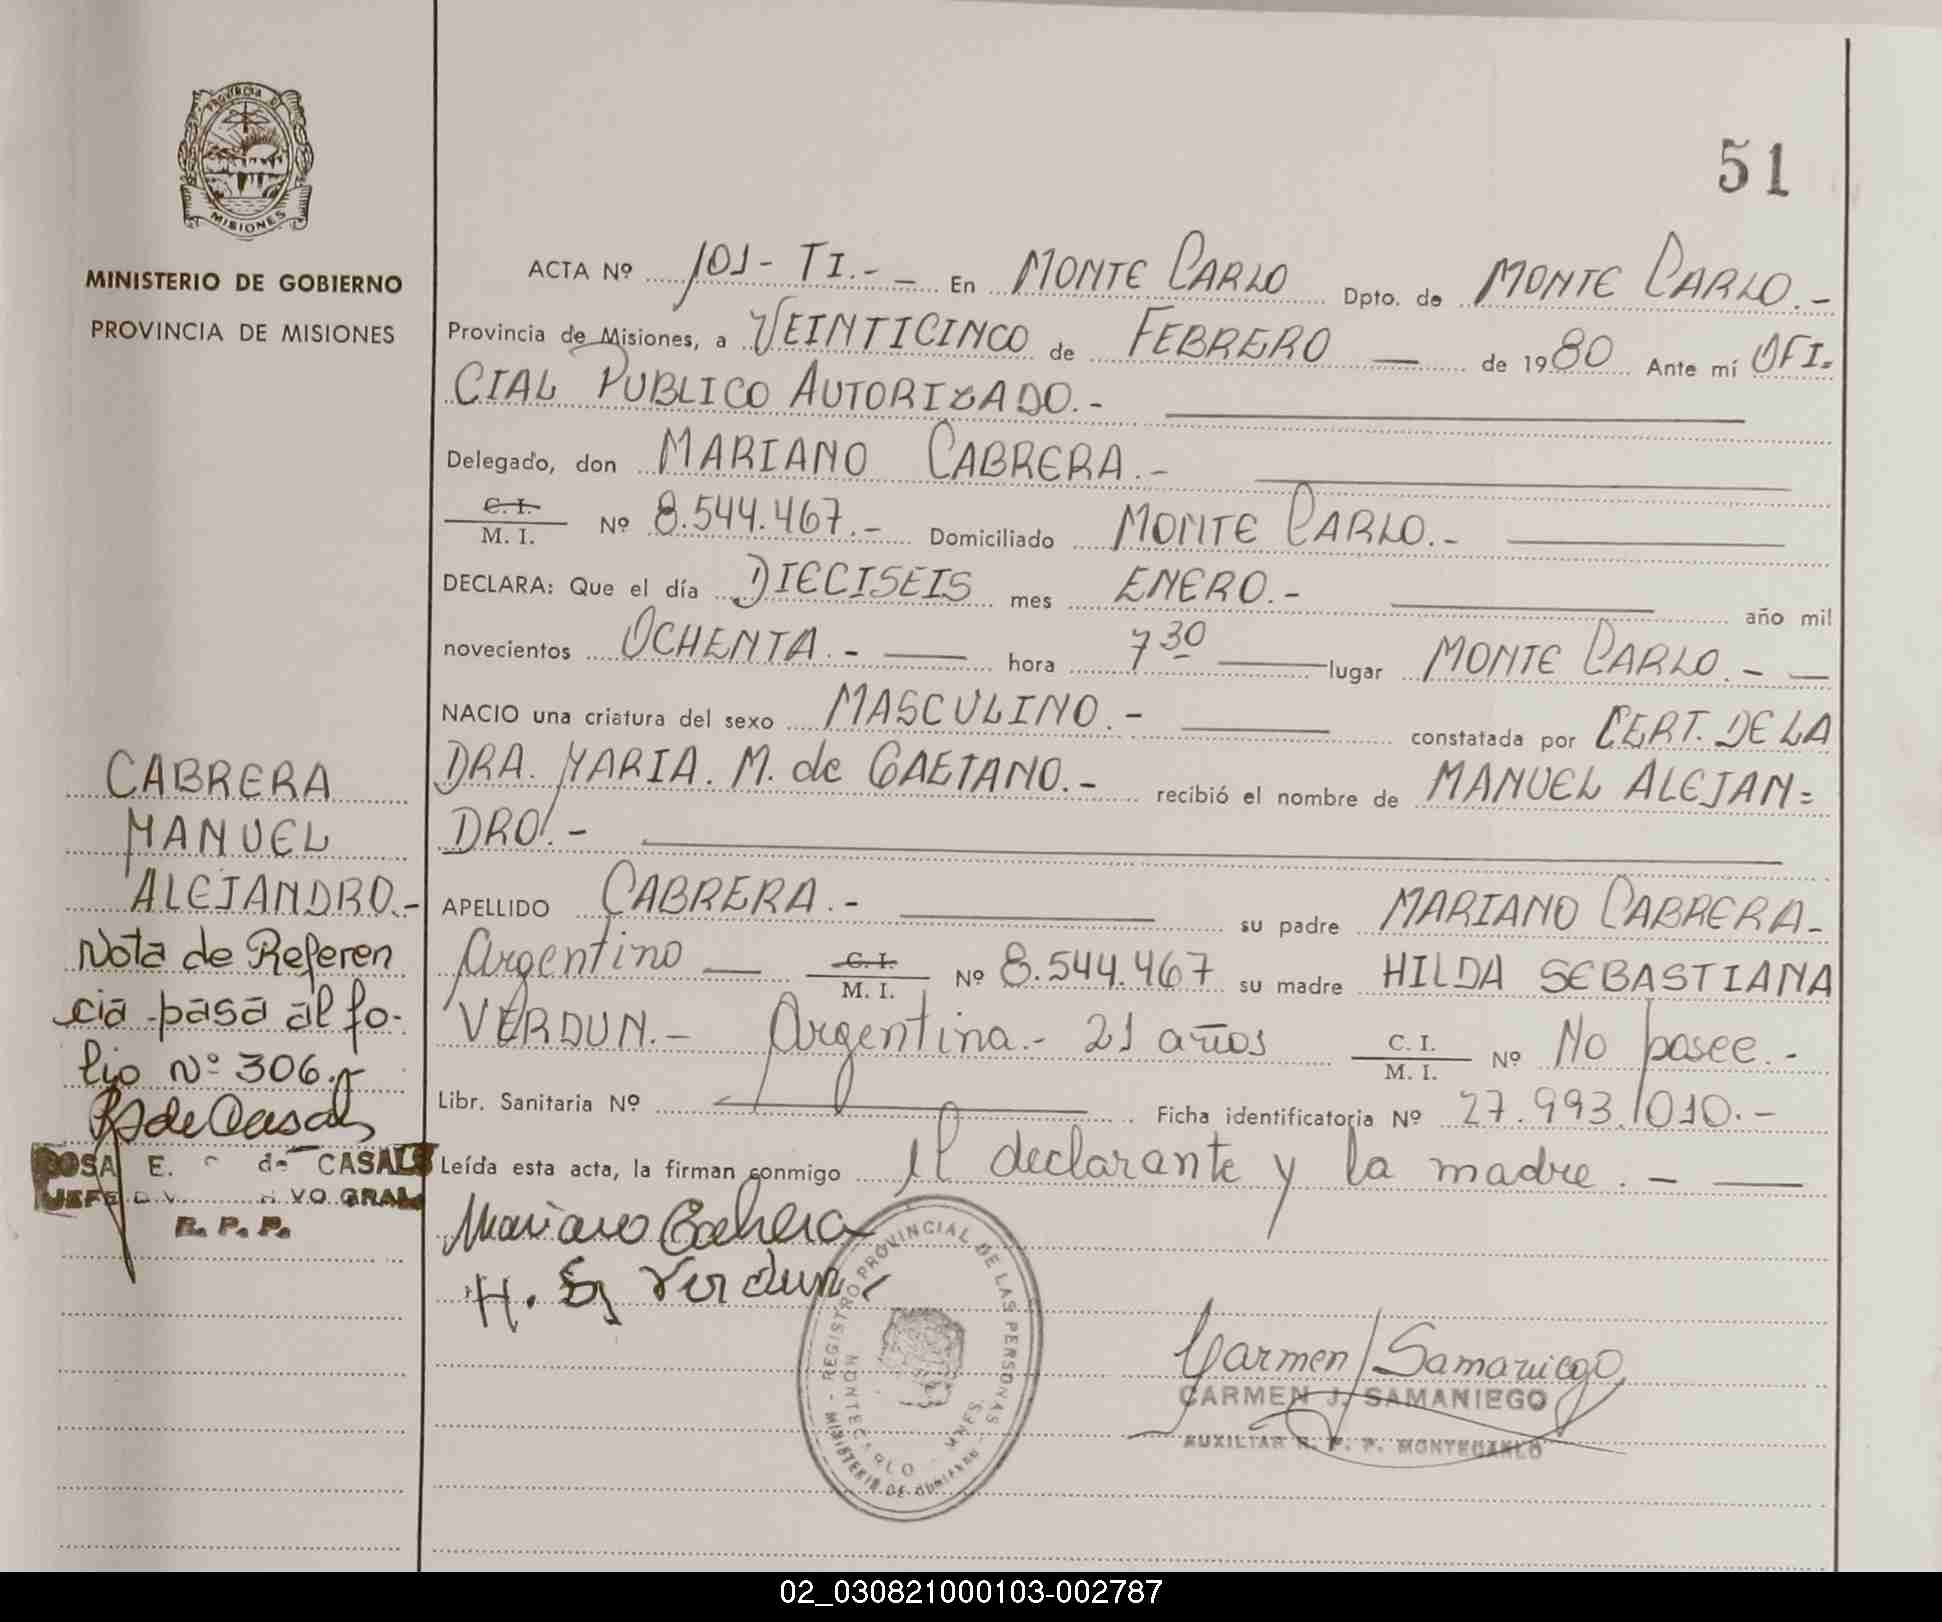 PROVINCIA DE
MISIONES
MINISTERIO DE GOBIERNO
PROVINCIA DE MISIONES
51
ACTA Nº 101 - TI.- - En MONTE CARLO Dpto. de MONTE CARLO.-
Provincia de Misiones, a VEINTICINCO de FEBRERO — de 1980 Ante mí OFI-
CIAL PUBLICO AUTORIZADO.-
Delegado, don MARIANO CABRERA.-
C. I.
M. I. Nº 8.544.467.- Domiciliado MONTE CARLO.-
DECLARA: Que el día DIECISEIS mes ENERO.- año mil
novecientos OCHENTA.- hora 7 30 lugar MONTE CARLO.-
NACIO una criatura del sexo MASCULINO.- constatada por CERT. DE LA
DRA. MARIA. M. de GAETANO.- recibió el nombre de MANUEL ALEJAN=
DRO.-
APELLIDO CABRERA.- su padre MARIANO CABRERA-
Argentino — C. I.
M. I. Nº 8.544.467 su madre HILDA SEBASTIANA
VERDUN.- Argentina.- 21 años C. I.
M. I. Nº No posee.-
Libr. Sanitaria Nº Ficha identificatoria Nº 27.993.010.-
Leída esta acta, la firman conmigo el declarante y la madre.-
Mariano Cabrera
H. S. Verdun
CABRERA
MANUEL
ALEJANDRO.-
Nota de Referen
cia pasa al fo-
lio Nº 306.-
R de Casals
ROSA E. de CASALS
JEFE GRAL
R. P. P.
REGISTRO PROVINCIAL DE LAS PERSONAS
MINISTERIO DE GOBIERNO
MONTECARLO - MNES.
Carmen J Samaniego
CARMEN J. SAMANIEGO
AUXILIAR R. P. P. MONTECARLO
02_030821000103-002787